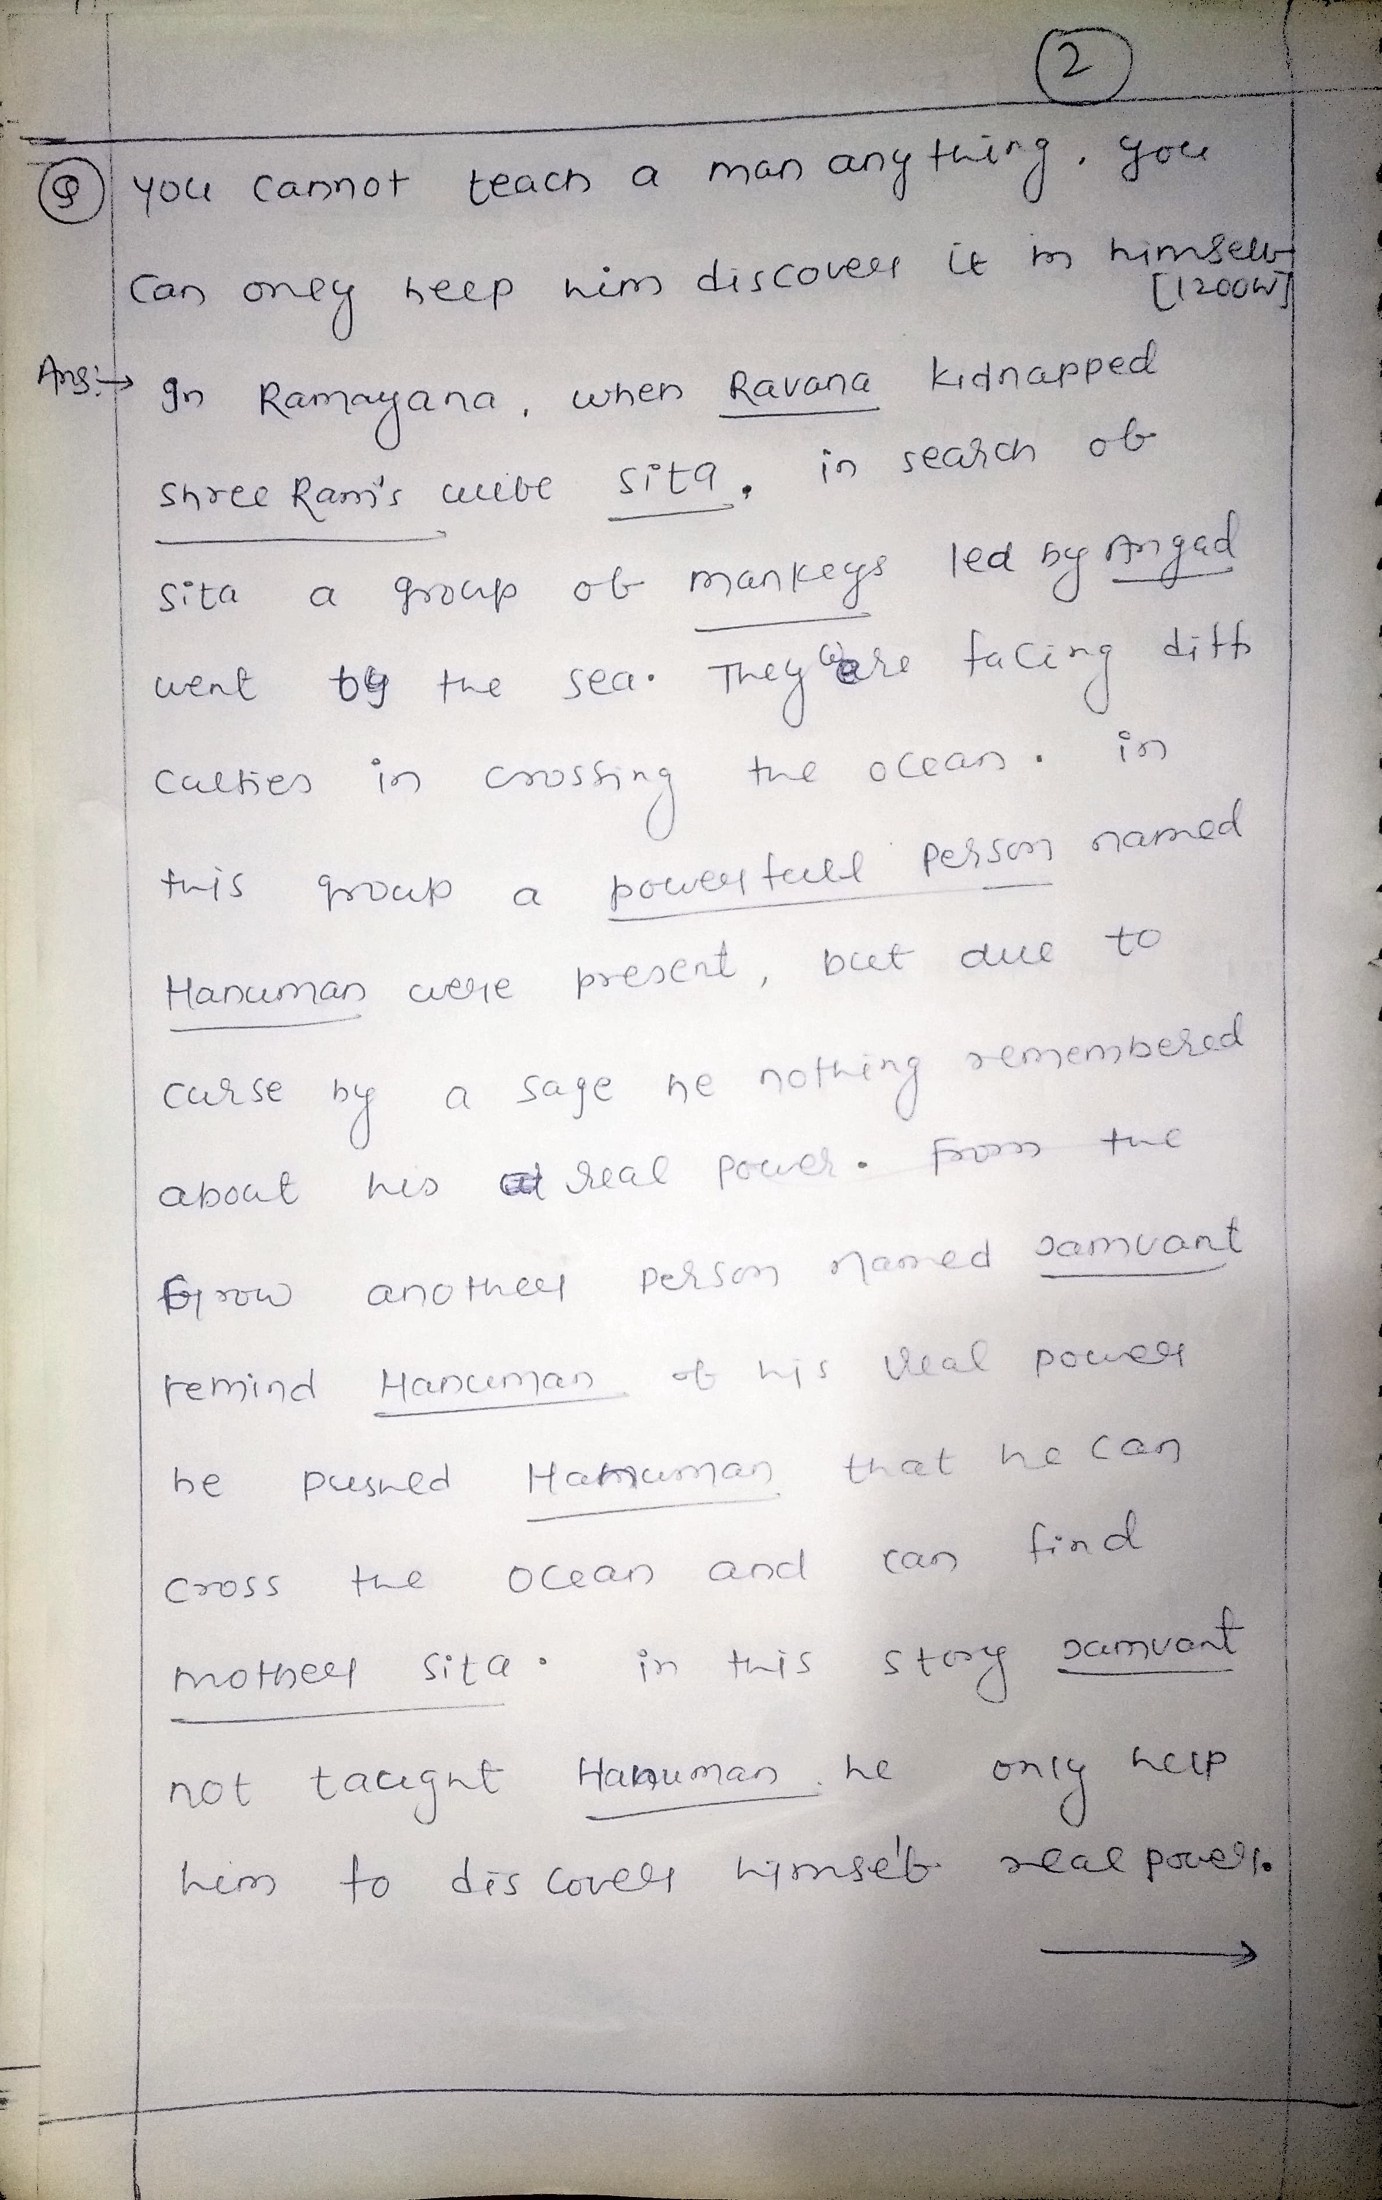 2
Q you cannot teach a man anything. you
can only help him discover it in himself
[1200W]
Ans:→ In Ramayana, when Ravana kidnapped
shree Ram's wife sita, in search of
sita a group of mankeys led by Angad
went by the sea. They were facing diffi
culties in crossing the ocean. in
this group a powerfull person named
Hanuman were present, but due to
curse by a sage he nothing remembered
about his real power. from the
grow another person named Jamvant
remind Hanuman of his real power
he pushed Hanuman that he can
cross the ocean and can find
mother sita. in this story Jamvant
not taught Hanuman. he only help
him to discover himself real power.
→